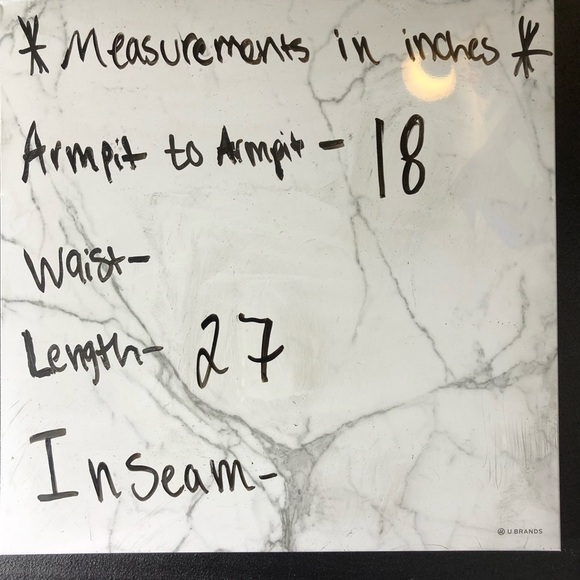 * Measurements in inches *
Armpit to Armpit - 18
Waist-
Length- 27
Inseam-
U.BRANDS